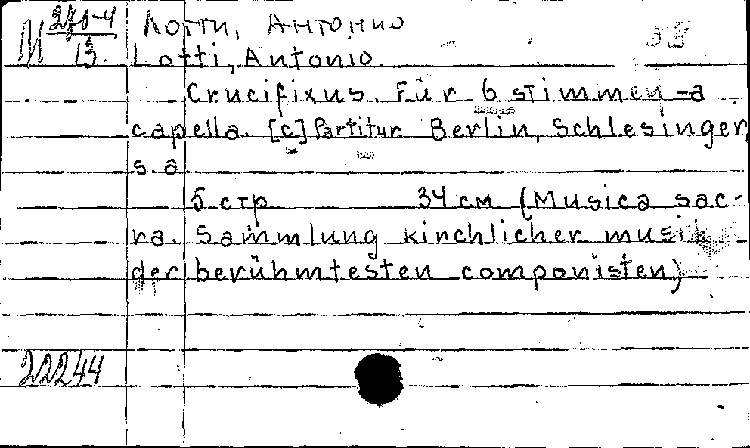 М 270-4/13 Лотти, Антонио
Lotti, Antonio. 33
Crucifixus. Für 6 stimmen a
capella. [c] Partitur Berlin, Schlesinger,
s. a
5 стр 34 см (Musica sac-
ra. Sammlung kirchlicher musik
der berühmtesten componisten)
22244